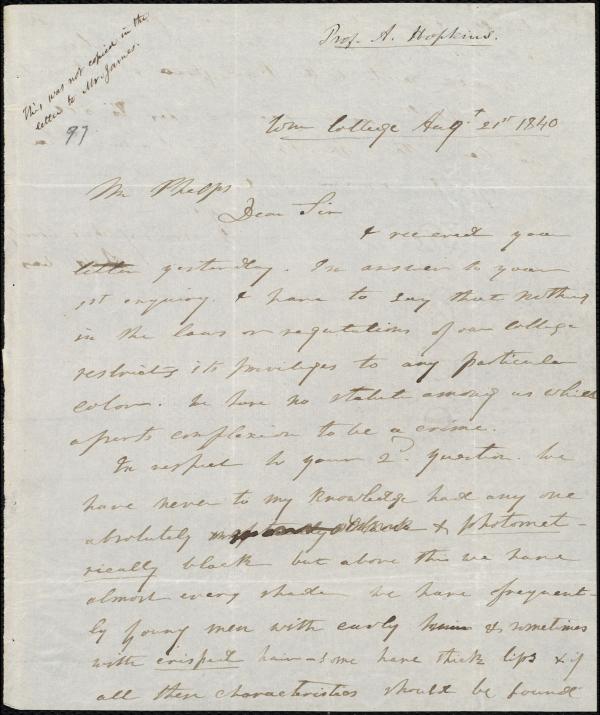 This was not copied in the
letter to Mr. James.
97
Prof. A. Hopkins.
Wm College Augt 21st 1840
Mr Phelps
Dear Sir
I received you
letter yesterday. In answer to your
1st enquiry. I have to say that nothing
in the laws or regulations of our College
restricts its priviliges to any particular
color. We have no statute among us which
asserts complexion to be a crime.
In respect to your 2d. question. We
have never to my knowledge had any one
absolutely & photomet-
rically black but above this we have
almost every shade. We have frequent-
ly young men with curly & sometimes
with crisped hair - some have thick lips & if
all these characteristics should be found